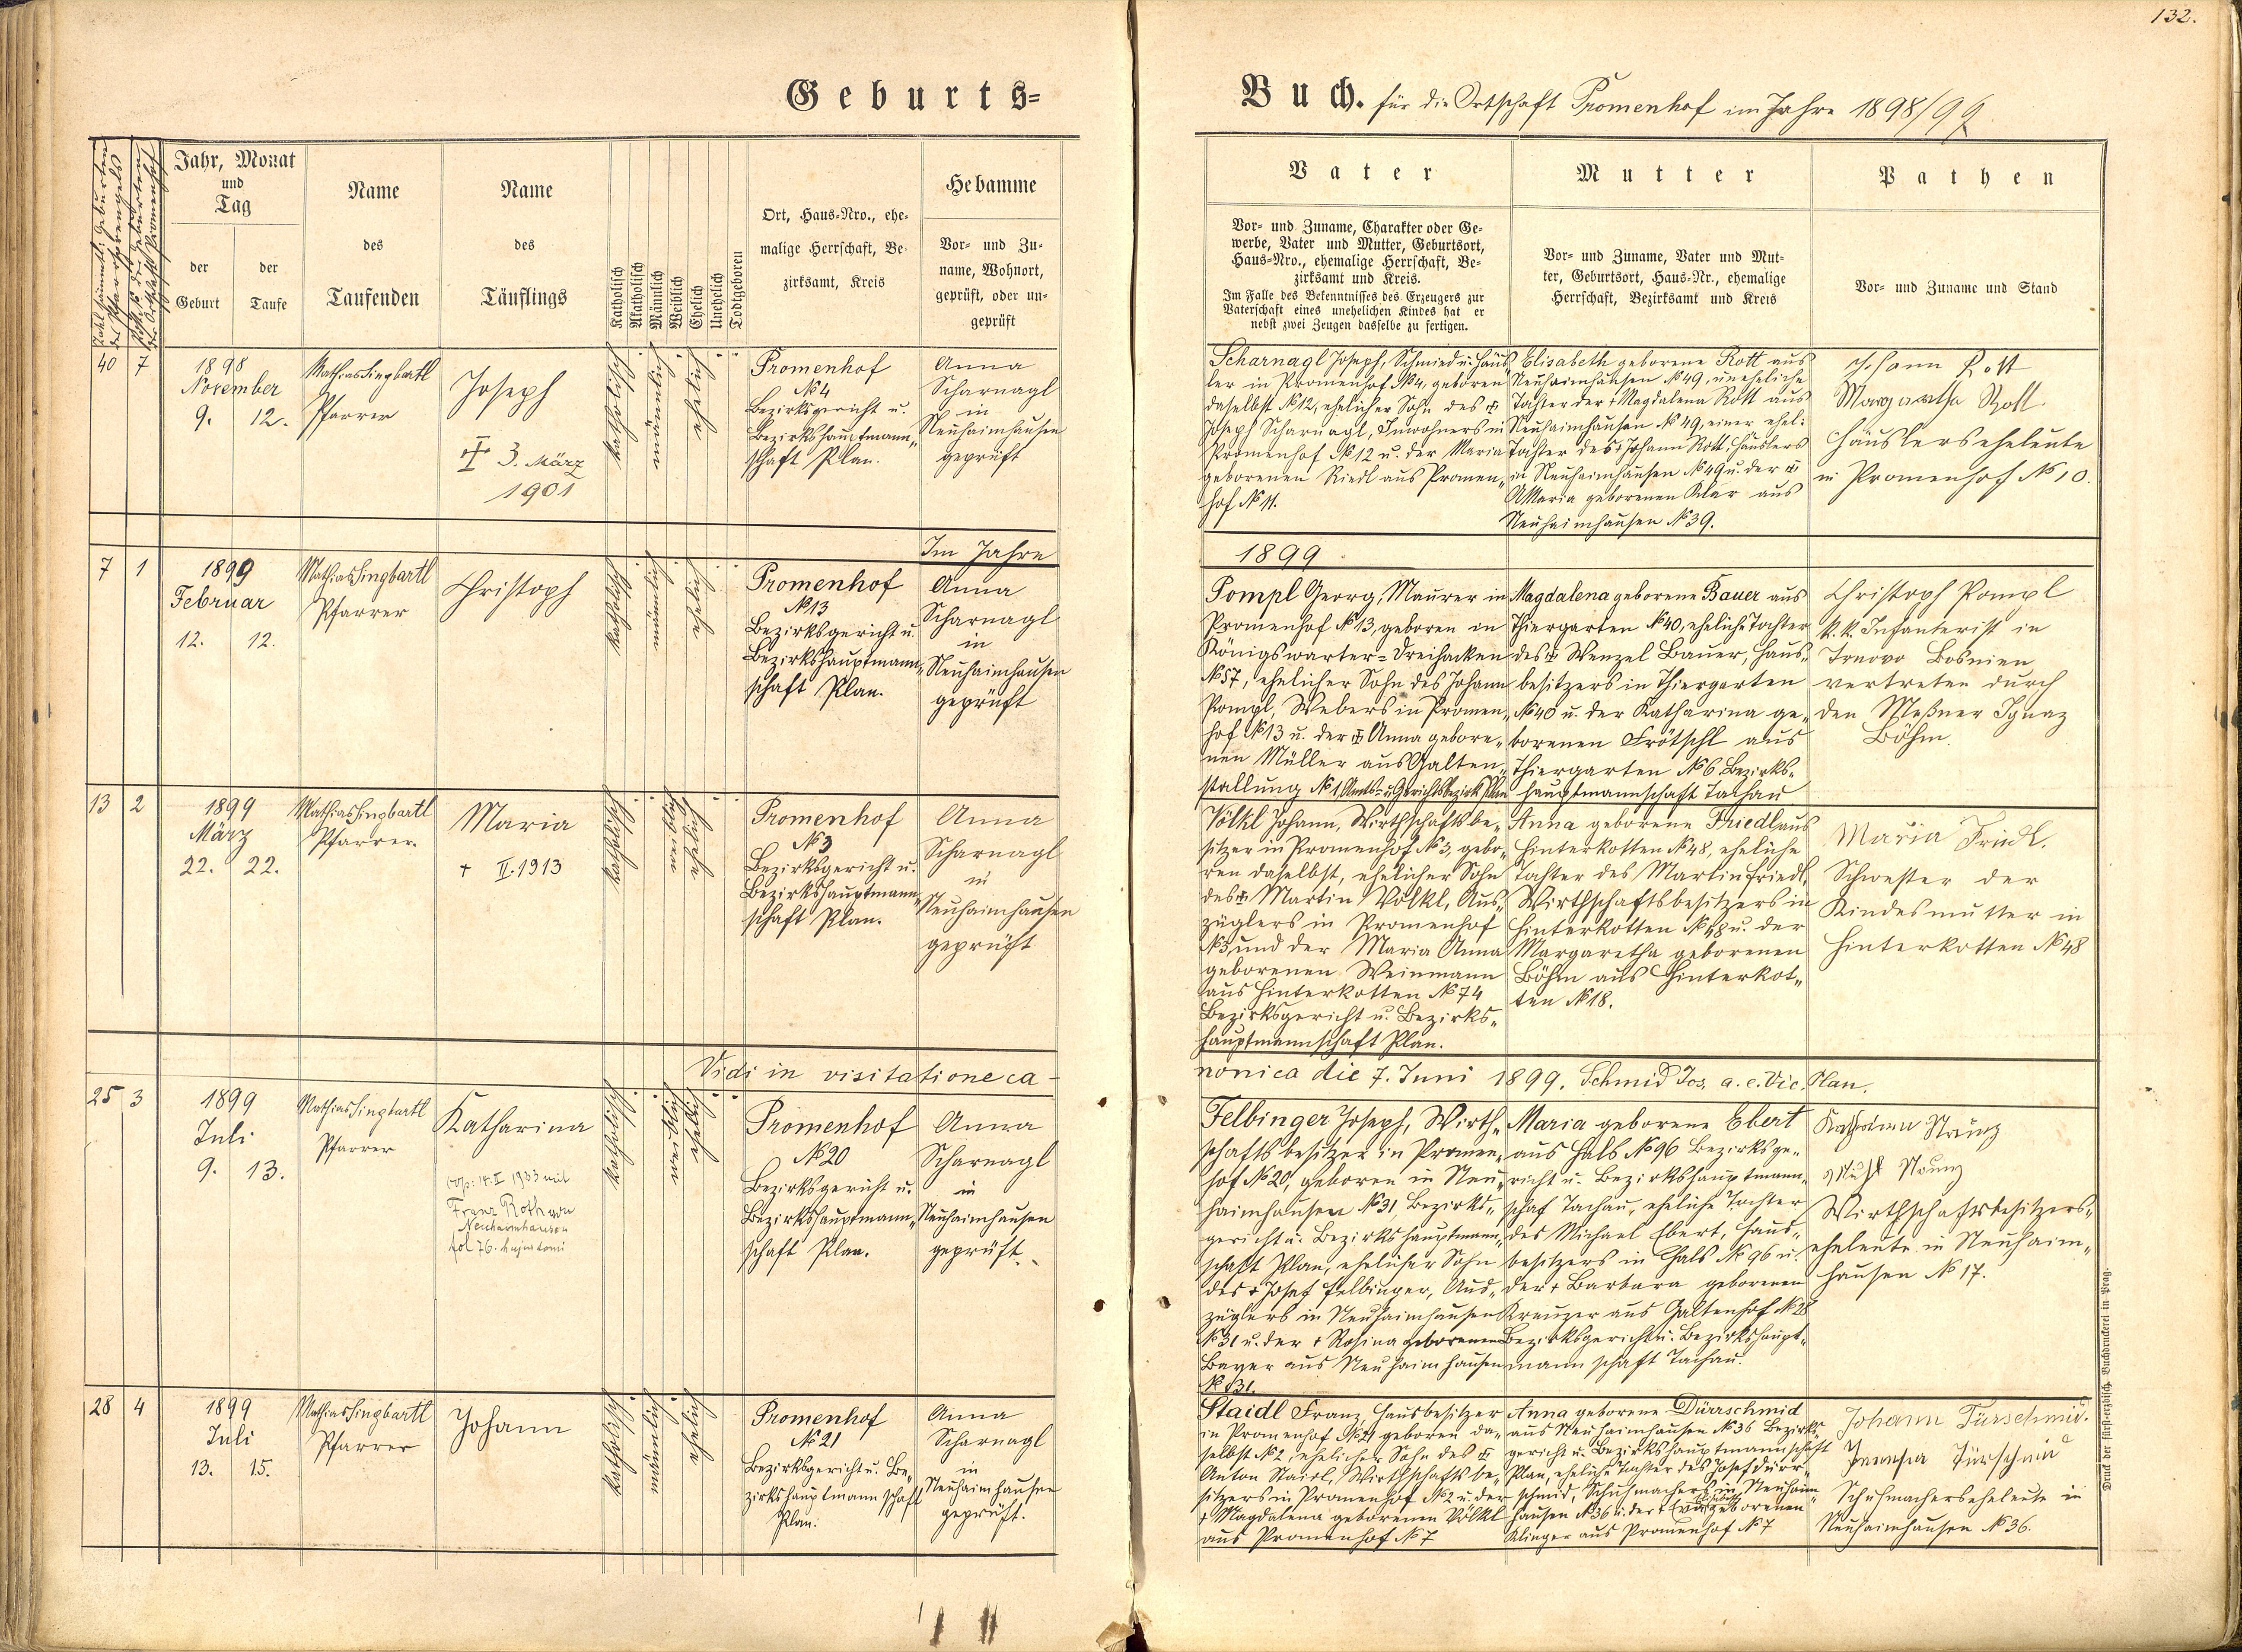 132.
Geburts=
Buch. für die Ortschaft Promenhof im Jahre 1898/99
Jahr, Monat
und
Tag
der
Geburt
der
Taufe
Name
des
Taufenden
Name
des
Täuflings
Katholisch
Akatholisch
Männlich
Weiblich
Ehelich
Unehelich
Todtgeboren
Ort, Haus=Nro., ehe=
malige Herrschaft, Be=
zirksamt, Kreis
Hebamme
Vor= und Zu=
name, Wohnort,
geprüft, oder un=
geprüft
Vater
Vor= und Zuname, Charakter oder Ge=
werbe, Vater und Mutter, Geburtsort,
Haus=Nro., ehemalige Herrschaft, Be=
zirksamt und Kreis.
Im Falle des Bekenntnisses des Erzeugers zur
Vaterschaft eines unehelichen Kindes hat er
nebst zwei Zeugen dasselbe zu fertigen.
Mutter
Vor= und Zuname, Vater und Mut=
ter, Geburtsort, Haus=Nr., ehemalige
Herrschaft, Bezirksamt und Kreis
Pathen
Vor= und Zuname und Stand
40 7
1898
November
9. 12.
Mathias Singbartl
Pfarrer
Joseph
3. März
1901
katholisch
männlich
ehelich
Promenhof
№ 4
Bezirksgericht u.
Bezirkshauptmann„
schaft Plan.
Anna
Scharnagl
in
Neuhaimhausen
geprüft
Scharnagl Joseph, Schmied u. Häus„
ler in Promenhof № 4, geboren
daselbst № 12, ehelicher Sohn des
Joseph Scharnagl, Inwohners in
Promenhof № 12 u. der Maria
geborenen Riedl aus Promen„
hof № 11.
Elisabeth geborene Rott aus
Neuhaimhausen № 49, uneheliche
Tochter der + Magdalena Rott aus
Neuhaimhausen № 49, einer ehel:
Tochter des + Johann Rott, Häuslers
in Neuhaimhausen № 49 u. der
Maria geborenen Klar aus
Neuhaimhausen № 39.
Johann Rott
Margaretha Rott.
Häuslerseheleute
in Promenhof № 10.
Im Jahre
1899
7 1
1899
Februar
12. 12.
Mathias Singbartl
Pfarrer
Christoph
katholisch
männlich
ehelich
Promenhof
№ 13
Bezirksgericht u.
Bezirkshauptmann„
schaft Plan.
Anna
Scharnagl
in
Neuhaimhausen
geprüft
Pompl Georg, Maurer in
Promenhof № 13, geboren in
Königswarter=Dreihacken
№ 57, ehelicher Sohn des Johann
Pompl, Webers in Promen„
hof № 13 u. der Anna gebore„
nen Müller aus Galten„
stallung № 1, Amts= u. Gerichtsbezirk Plan
Magdalena geborene Bauer aus
Thiergarten № 40, eheliche Tochter
des Wenzel Bauer, Haus„
besitzers in Thiergarten
№ 40 u. der Katharina ge„
borenen Frötschl aus
Thiergarten № 6 Bezirks„
hauptmannschaft Tachau
Christoph Pompl
k. k. Infanterist in
Trnovo Bosnien
vertreten durch
den Meßner Ignaz
Böhm.
13 2
1899
März
22. 22.
Mathias Singbartl
Pfarrer.
Maria
+ II. 1913
katholisch
weiblich
ehelich
Promenhof
№ 3
Bezirksgericht u.
Bezirkshauptmann„
schaft Plan.
Anna
Scharnagl
in
Neuhaimhausen
geprüft
Völkl Johann, Wirthschaftsbe„
sitzer in Promenhof № 3, gebo„
ren daselbst, ehelicher Sohn
des Martin Völkl, Aus„
züglers in Promenhof
№ 3, und der Maria Anna
geborenen Weinmann
aus Hinterkotten № 74
Bezirksgericht u. Bezirks„
hauptmannschaft Plan.
Anna geborene Friedl aus
Hinterkotten № 48, eheliche
Tochter des Martin Friedl,
Wirthschaftsbesitzers in
Hinterkotten № 48 u. der
Margaretha geborenen
Böhm aus Hinterkot„
ten № 18.
Maria Friedl.
Schwester der
Kindesmutter in
Hinterkotten № 48
Vidi in visitatione ca-
nonica die 7. Juni 1899. Schmid Jos. a. e. Vic. Plan.
25 3
1899
Juli
9. 13.
Mathias Singbartl
Pfarrer
Katharina
cop: 14. II 1933 mit
Franz Roth von
Neuhaimhausen
fol 76. hujus tomi
katholisch
weiblich
ehelich
Promenhof
№ 20
Bezirksgericht u.
Bezirkshauptmann„
schaft Plan.
Anna
Scharnagl
in
Neuhaimhausen
geprüft.
Felbinger Joseph, Wirth„
schaftsbesitzer in Promen„
hof № 20, geboren in Neu„
haimhausen № 31, Bezirks„
gericht u. Bezirkshauptmann„
schaft Plan, ehelicher Sohn
des + Josef Felbinger, Aus„
züglers in Neuhaimhausen
№ 31 u. der + Rosina geborenen
Bayer aus Neuhaimhausen
№ 31.
Maria geborene Ebert
aus Hals № 96 Bezirksge„
richt u. Bezirkshauptmann„
schaf Tachau, eheliche Tochter
des Michael Ebert, Haus„
besitzers in Hals № 96 u.
der + Barbara geborenen
Kreuzer aus Galtenhof № 28
Bezirksgericht u. Bezirkshaupt„
mannschaft Tachau.
Wirthschaftsbesitzers„
eheleute in Neuhaim„
hausen № 17.
28 4
1899
Juli
13. 15.
Mathias Singbartl
Pfarrer
Johann
katholisch
männlich
ehelich
Promenhof
№ 21
Bezirksgericht u. Be„
zirkshauptmannschaft
Plan.
Anna
Scharnagl
in
Neuhaimhausen
geprüft.
Staidl Franz, Hausbesitzer
in Promenhof № 21 geboren da„
selbst № 2, ehelicher Sohn des
Anton Staidl, Wirthschaftsbe„
sitzers in Promenhof № 2 u. der
+ Magdalena geborenen Völkl
aus Promenhof № 7
Anna geborene Dürrschmid
aus Neuhaimhausen № 36 Bezirks„
gericht u. Bezirkshauptmannschaft
Plan, eheliche Tochter des Josef Dürr„
schmid, Schuhmachers in Neuhaim„
hausen № 36 u. der + geborenen
Klinger aus Promenhof № 7
Johann Türschmid.
Schuhmacherseheleute in
Neuhaimhausen № 36.
Druck der fürst=erzbisch. Buchdruckerei in Prag.